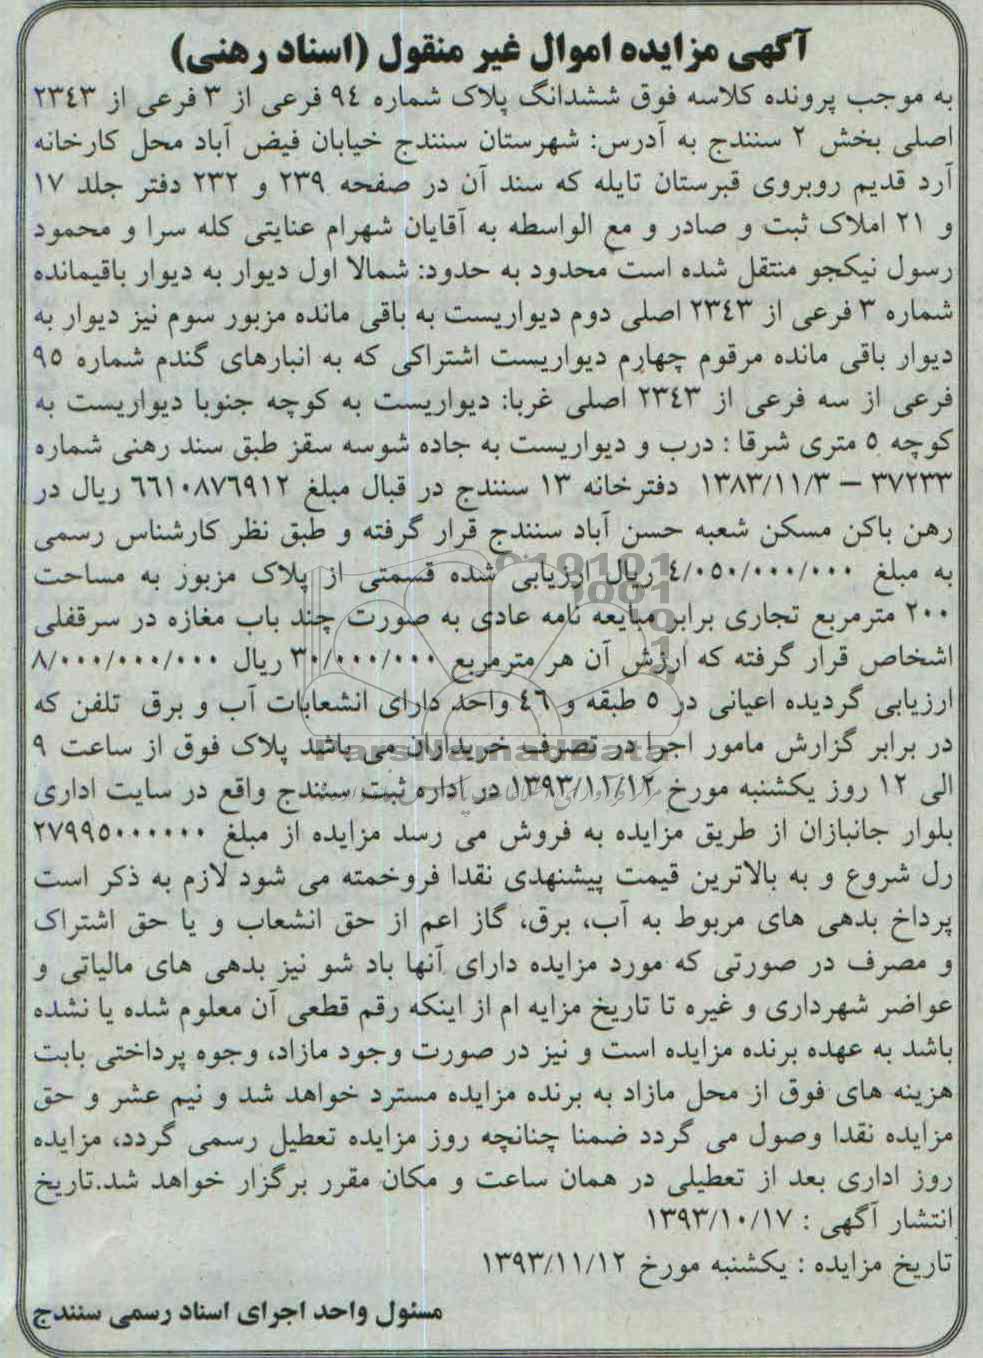 آگهی مزایده اموال غیر منقول (اسناد رهنی)
به موجب پرونده کلاسه فوق ششدانگ پلاک شماره ۹٤ فرعی از ۳ فرعی از ۲۳٤۳
اصلی بخش ۲ سنندج به آدرس: شهرستان سنندج خیابان فیض آباد محل کارخانه
آرد قدیم روبروی قبرستان تایله که سند آن در صفحه ۲۳۹ و ۲۳۲ دفتر جلد ۱۷
و ۲۱ املاک ثبت و صادر و مع الواسطه به آقایان شهرام عنایتی کله سرا و محمود
رسول نیکجو منتقل شده است محدود به حدود: شمالا اول دیوار به دیوار باقیمانده
شماره ۳ فرعی از ۲۳٤۳ اصلی دوم دیواریست به باقی مانده مزبور سوم نیز دیوار به
دیوار باقی مانده مرقوم چهارم دیواریست اشتراکی که به انبارهای گندم شماره ۹۵
فرعی از سه فرعی از ۲۳٤۳ اصلی غربا: دیواریست به کوچه جنوبا دیواریست به
کوچه ۵ متری شرقا : درب و دیواریست به جاده شوسه سقز طبق سند رهنی شماره
۳۷۲۳۳ – ۱۳۸۳/۱۱/۳ دفترخانه ۱۳ سنندج در قبال مبلغ ٦٦۱۰۸۷٦۹۱۲ ریال در
رهن باکن مسکن شعبه حسن آباد سنندج قرار گرفته و طبق نظر کارشناس رسمی
به مبلغ ٤/۰۵۰/۰۰۰/۰۰۰ ریال ارزیابی شده قسمتی از پلاک مزبوز به مساحت
۲۰۰ مترمربع تجاری برابر مبایعه نامه عادی به صورت چند باب مغازه در سرقفلی
اشخاص قرار گرفته که ارزش آن هر مترمربع ۳۰/۰۰۰/۰۰۰ ریال ۸/۰۰۰/۰۰۰/۰۰۰
ارزیابی گردیده اعیانی در ۵ طبقه و ٤٦ واحد دارای انشعابات آب و برق تلفن که
در برابر گزارش مامور اجرا در تصرف خریداران می باشد پلاک فوق از ساعت ۹
الی ۱۲ روز یکشنبه مورخ ۱۳۹۳/۱۱/۱۲ در اداره ثبت سنندج واقع در سایت اداری
بلوار جانبازان از طریق مزایده به فروش می رسد مزایده از مبلغ ۲۷۹۹۵۰۰۰۰۰۰
رل شروع و به بالاترین قیمت پیشنهدی نقدا فروخمته می شود لازم به ذکر است
پرداخ بدهی های مربوط به آب، برق، گاز اعم از حق انشعاب و یا حق اشتراک
و مصرف در صورتی که مورد مزایده دارای آنها باد شو نیز بدهی های مالیاتی و
عواضر شهرداری و غیره تا تاریخ مزایه ام از اینکه رقم قطعی آن معلوم شده یا نشده
باشد به عهده برنده مزایده است و نیز در صورت وجود مازاد، وجوه پرداختی بابت
هزینه های فوق از محل مازاد به برنده مزایده مسترد خواهد شد و نیم عشر و حق
مزایده نقدا وصول می گردد ضمنا چنانچه روز مزایده تعطیل رسمی گردد، مزایده
روز اداری بعد از تعطیلی در همان ساعت و مکان مقرر برگزار خواهد شد.تاریخ
انتشار آگهی : ۱۳۹۳/۱۰/۱۷
تاریخ مزایده : یکشنبه مورخ ۱۳۹۳/۱۱/۱۲
مسئول واحد اجرای اسناد رسمی سنندج
ParsNamadData